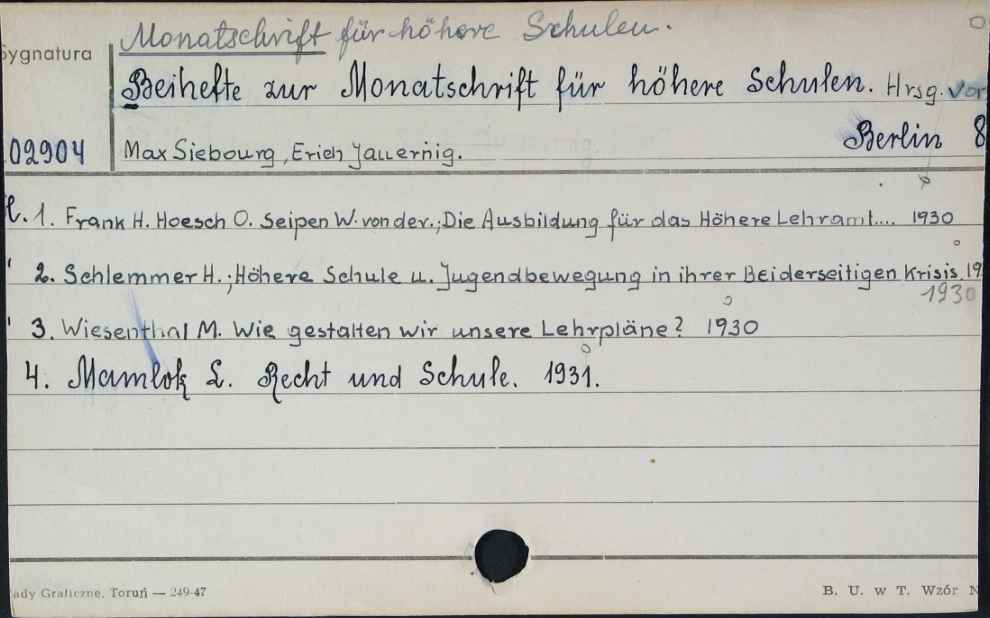 Monatschrift für höhere Schulen.
Sygnatura
Beihefte zur Monatschrift für höhere Schulen. Hrsg. von
Berlin 8
02904 Max Siebourg, Erich Jauernig.
1. Frank H. Hoesch O. Seipen W. von der.; Die Ausbildung für das Höhere Lehramt.... 1930
2. Schlemmer H.; Höhere Schule u. Jugendbewegung in ihrer Beiderseitigen Krisis. 19
1930
3. Wiesenthal M. Wie gestalten wir unsere Lehrpläne? 1930
4. Mamlok L. Recht und Schule. 1931.
ady Graficzne, Toruń — 249-47 B. U. w T. Wzór N